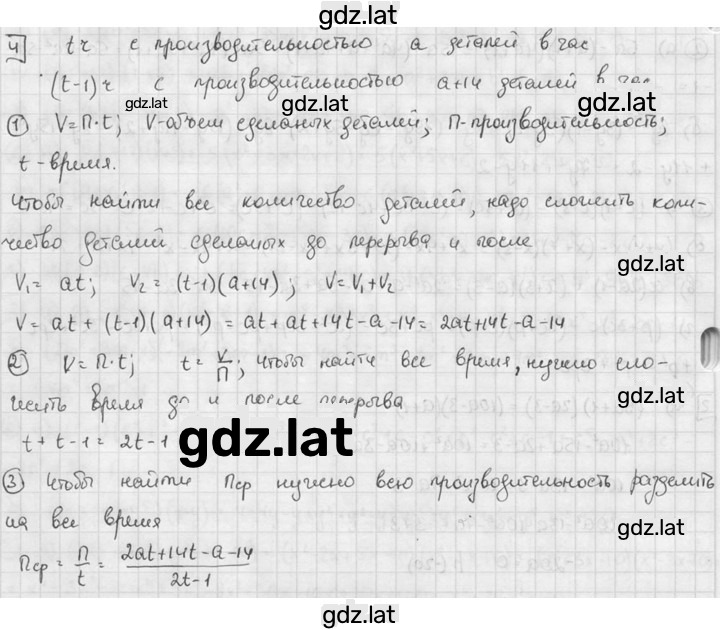 gdz.lat
4 tч с производительностью a деталей в час
(t-1)ч с производительностью a+14 деталей в час
gdz.lat gdz.lat gdz.lat
① V=П·t; V-объем сделаных деталей; П-производительность;
t - время.
Чтобы найти все количество деталей, надо сложить коли-
чество деталей сделаных до перерыва и после
gdz.lat
V₁= at; V₂= (t-1)(a+14); V=V₁+V₂
V= at + (t-1)(a+14) = at+at+14t-a-14= 2at+14t-a-14
② V=П·t; t= V/П; Чтобы найти все время, нужно сло-
жить время до и после перерыва
gdz.lat
t+t-1= 2t-1
gdz.lat
③ Чтобы найти Пср нужно всю производительность разделить
на все время
gdz.lat
Пср = П/t = (2at+14t-a-14)/(2t-1)
gdz.lat